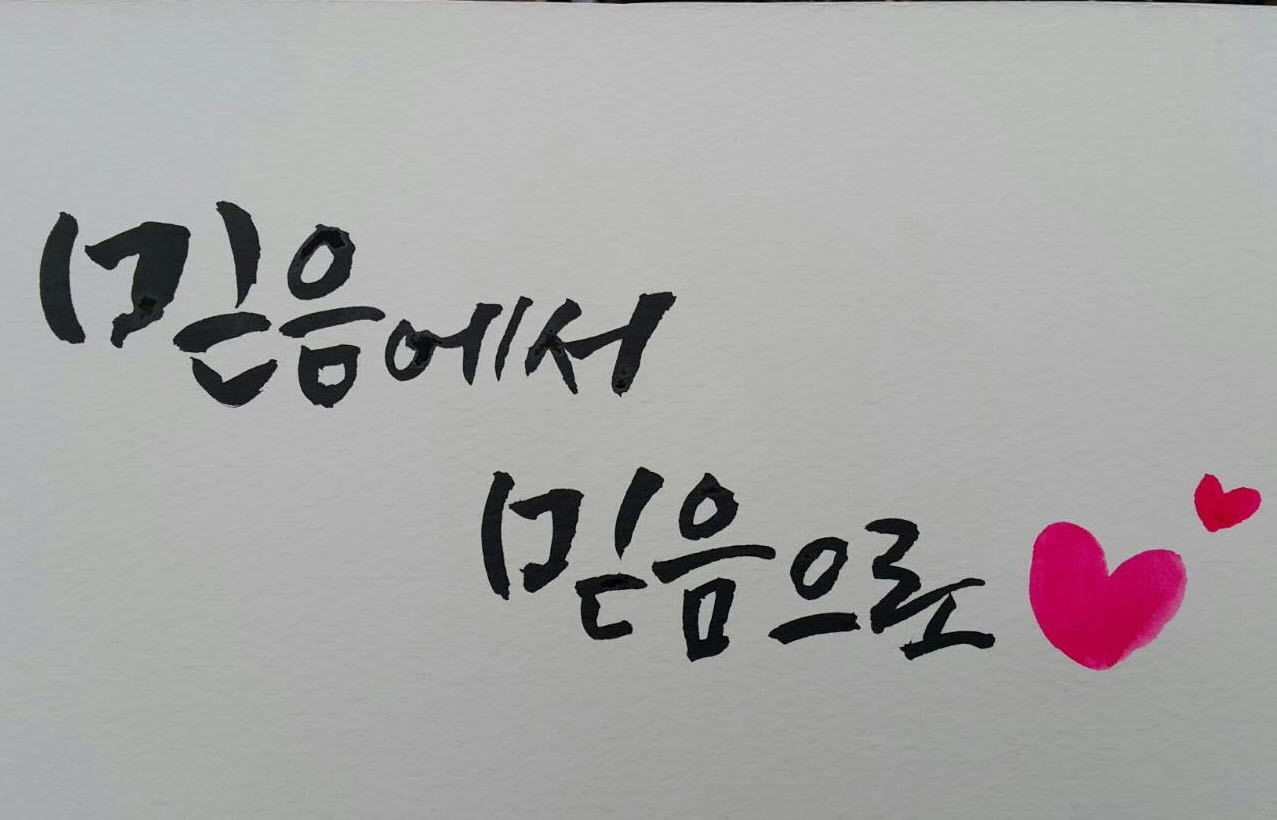 믿음에서
믿음으로